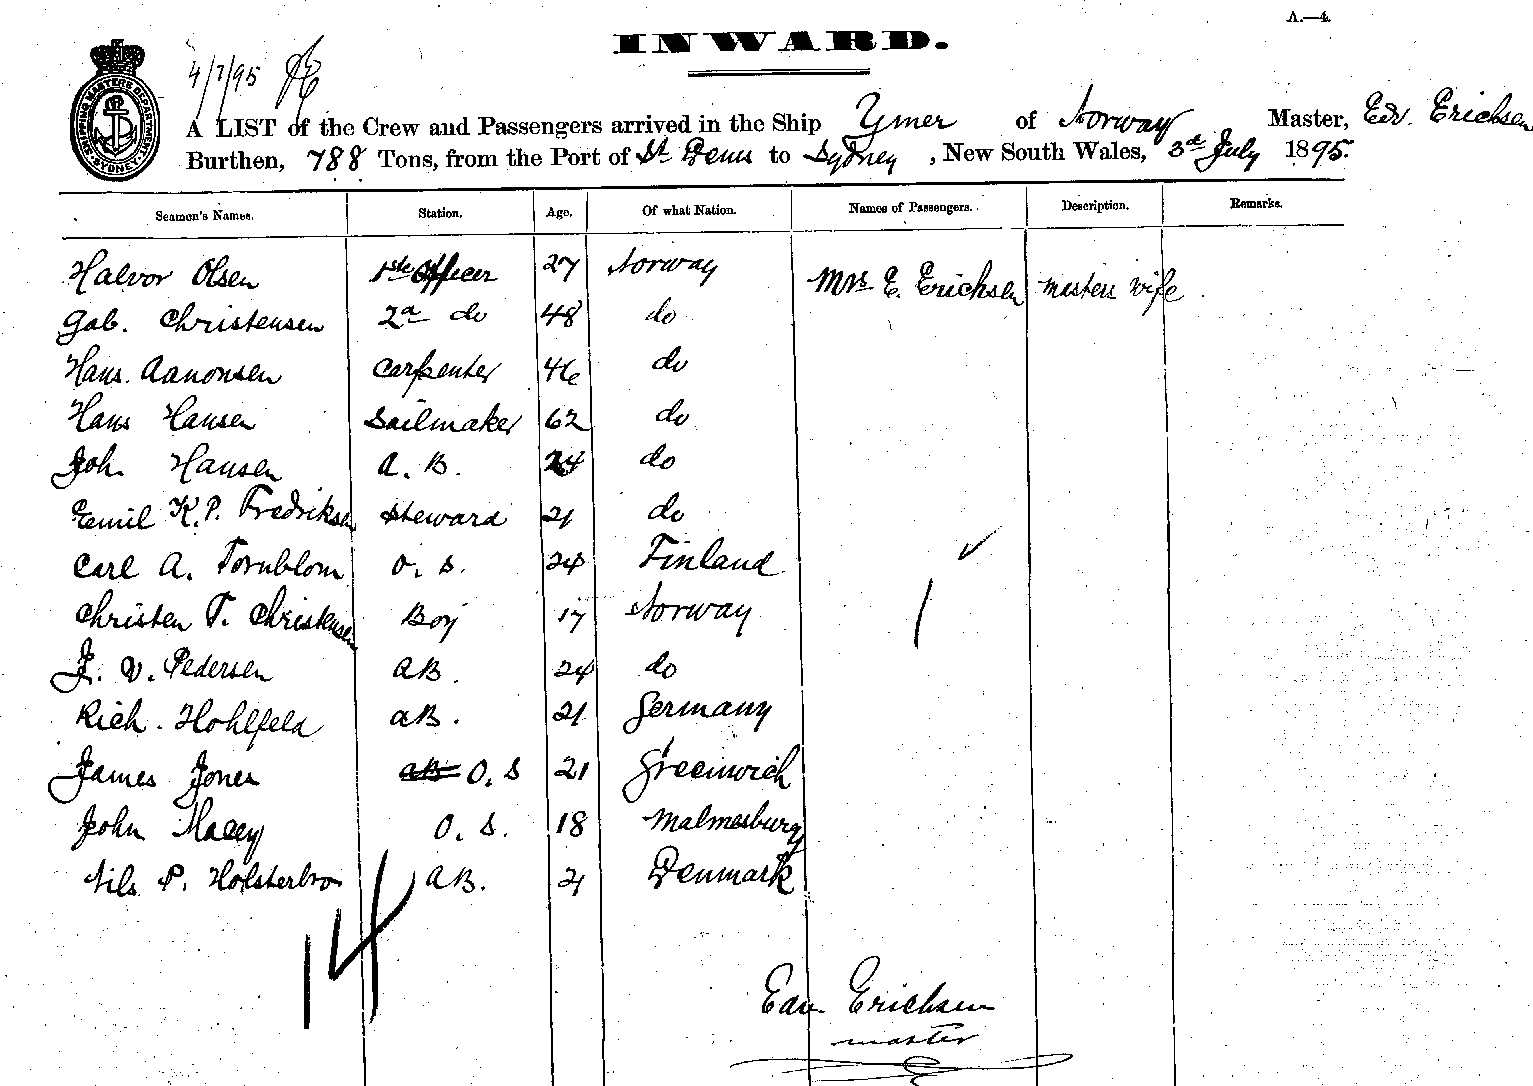 A.—4.
INWARD.
4/7/95
SHIPPING MASTERS DEPARTMENT SYDNEY
A LIST of the Crew and Passengers arrived in the Ship Ymer of Norway Master, Edv. Erichsen
Burthen, 788 Tons, from the Port of St Denis to Sydney, New South Wales, 3rd July 1895.
Seamen's Names. Station. Age. Of what Nation. Names of Passengers. Description. Remarks.
Halvor Olsen 1ste Officer 27 Norway Mrs E. Erichsen masters wife
Gab. Christensen 2d do 48 do
Hans Aanonsen Carpenter 46 do
Hans Hansen Sailmaker 62 do
Joh. Hansen A.B. 24 do
Emil K.P. Fredriksen Steward 21 do
Carl A. Tornblom O.S. 24 Finland
Christen T. Christensen Boy 17 Norway
J. V. Pedersen AB. 24 do
Rich. Hohlfeld AB. 21 Germany
James Jones AB O.S 21 Greenwich
John Macey O.S. 18 Malmesburg
Nils P. Holsterbro AB. 21 Denmark
14
Edv. Erichsen
master